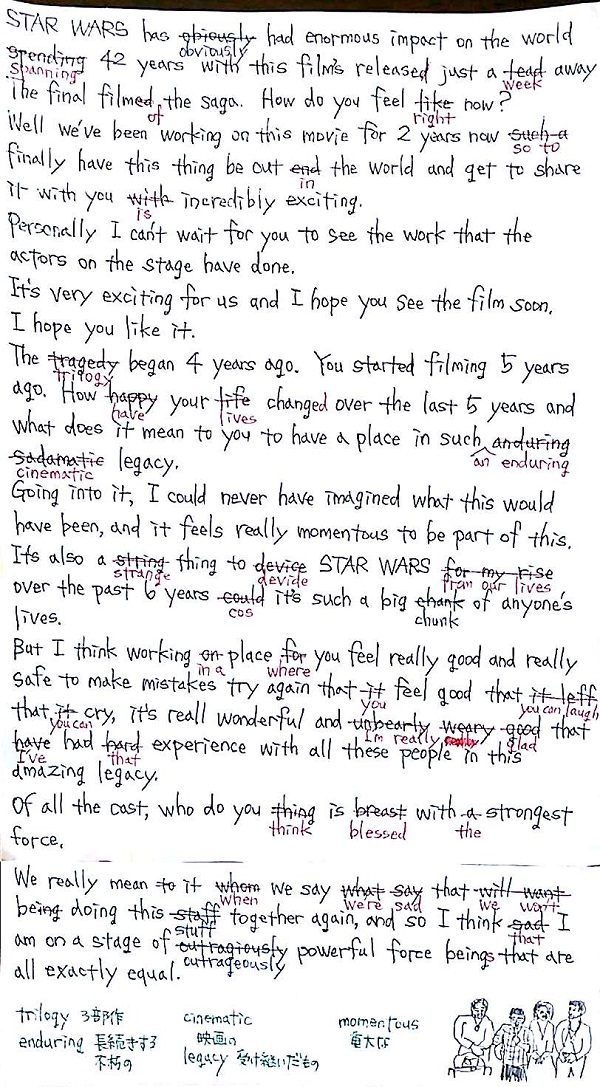 STAR WARS has obviously had enormous impact on the world
obviously
spending 42 years with this film's released just a tead away
spanning week
The final filmed the saga. How do you feel like now?
of right
Well we've been working on this movie for 2 years now such a
so to
finally have this thing be out end the world and get to share
in
it with you with incredibly exciting.
is
Personally I can't wait for you to see the work that the
actors on the stage have done.
It's very exciting for us and I hope you see the film soon.
I hope you like it.
The tragedy began 4 years ago. You started filming 5 years
trilogy
ago. How happy your life changed over the last 5 years and
have lives
what does it mean to you to have a place in such anduring
an enduring
sadamatic legacy.
cinematic
Going into it, I could never have imagined what this would
have been, and it feels really momentous to be part of this.
It's also a string thing to device STAR WARS for my rise
strange devide from our lives
over the past 6 years could it's such a big chank of anyone's
cos chunk
lives.
But I think working on place for you feel really good and really
in a where
safe to make mistakes try again that it feel good that it leff
you you can laugh
that it cry, it's reall wonderful and unbearly weary good that
you can I'm really glad
have had hard experience with all these people in this
I've that
amazing legacy.
Of all the cast, who do you thing is breast with a strongest
think blessed the
force.
We really mean to it whom we say what say that will want
when we're sad we won't
being doing this staff together again, and so I think sad I
stuff that
am on a stage of outragiously powerful force beings that are
outrageously
all exactly equal.
trilogy 3部作 cinematic momentous
enduring 長続きする 映画の 重大な
不朽の legacy 受け継いだもの